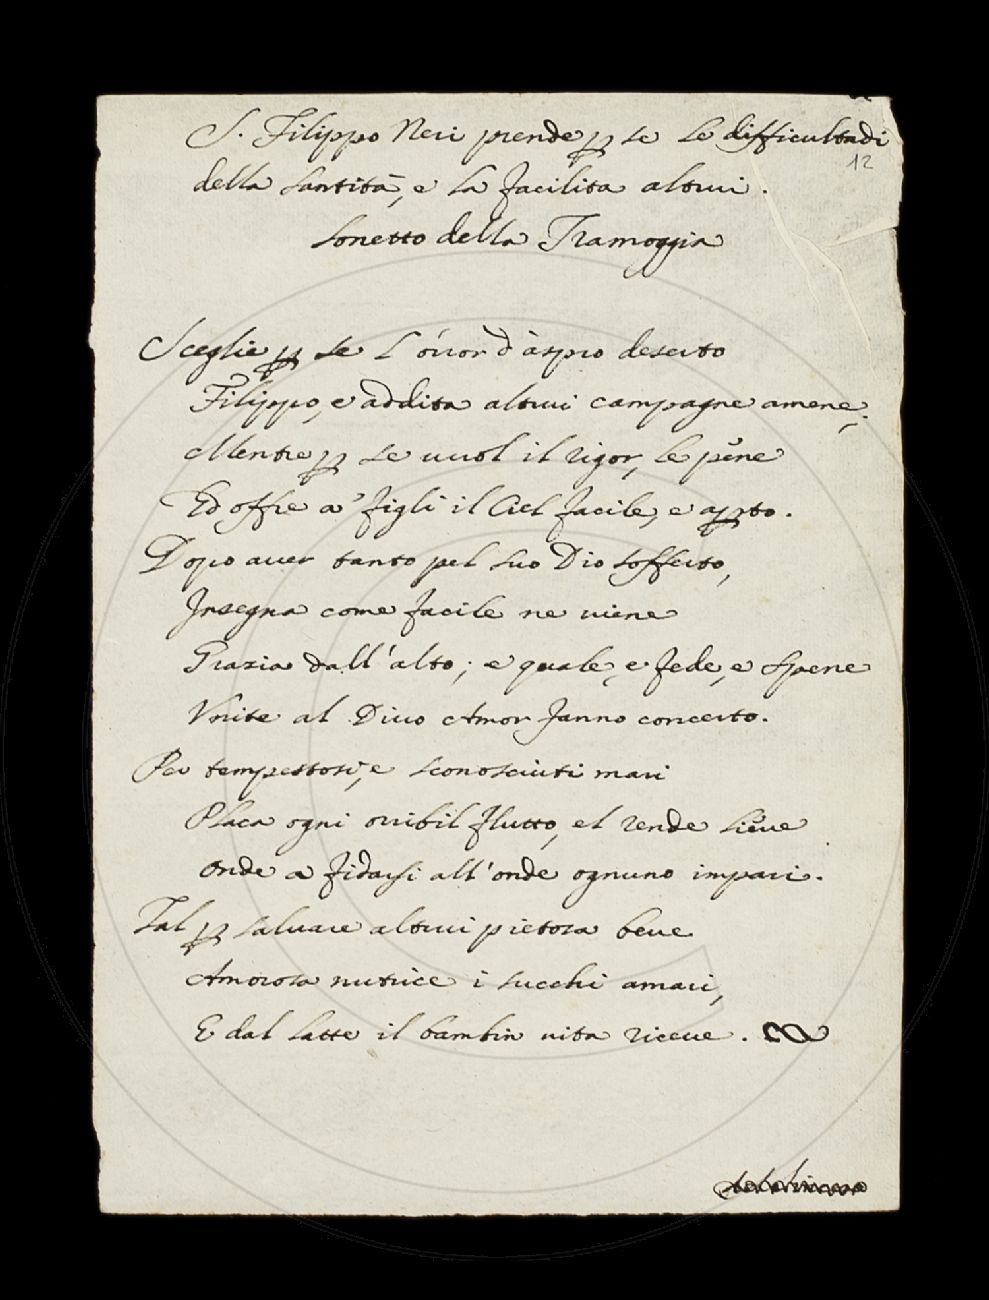 S. Filippo Neri prende ꝑ se le difficultadi
12
della santità, e la facilita altrui.
Sonetto della Tramoggia
Sceglie ꝑ se l'orror d'aspro deserto
Filippo, e addita altrui campagne amene;
Mentre ꝑ se vuol il rigor, le pene
Ed offre a' figli il Ciel facile, e aꝑto.
Dopo aver tanto pel suo Dio sofferto,
Insegna come facile ne viene
Grazia dall'alto; e quale, e fede, e spene
Unite al Divo Amor fanno concerto.
Per tempestosi, e sconosciuti mari
Placa ogni orribil flutto, el rende lieve
Onde a fidarsi all'onde ognuno impari.
Tal ꝑ salvare altrui pietosa beve
Amorosa nutrice i succhi amari,
E dal latte il bambin vita riceve.